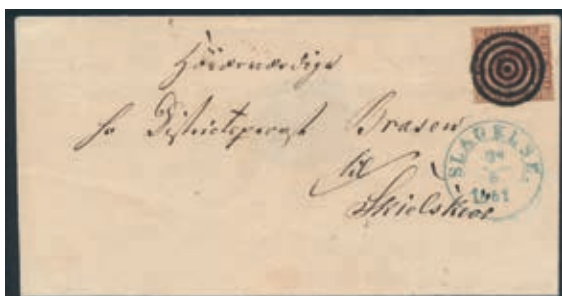 Höiærværdige
Hr Districtsprovst Brasen
til
Skielskiør
SLAGELSE.
1861